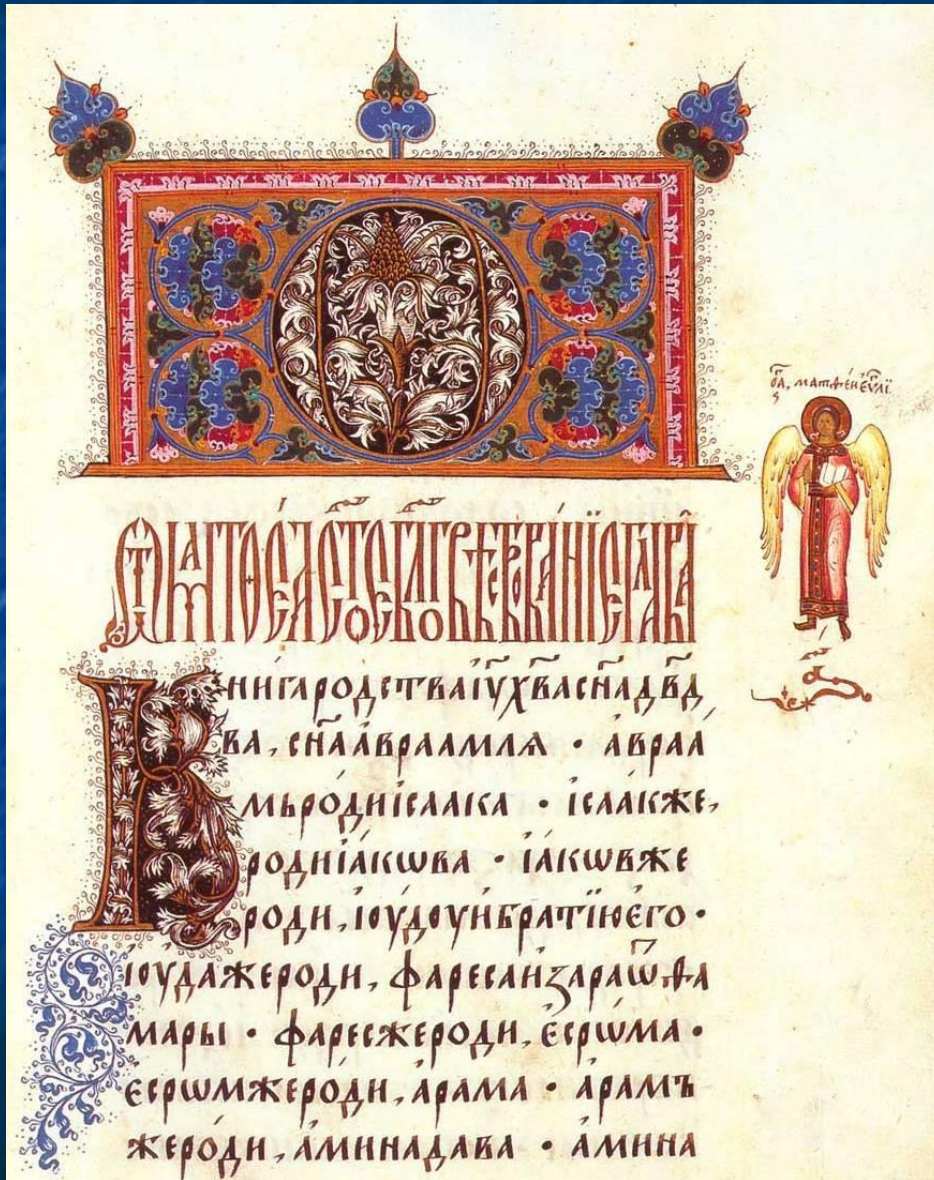 ст҃а, матѳеи еѵⷢ҇лі
ѕ
Ѿ матѳеа ст҃ое бл҃говѣствованїе глава а҃
Книгародстваіу҃хв҃асн҃адв҃д
ва, сн҃аавраамля · авраа
мьродиісаака · ісаакже,
родиіакѡва · іакѡвже
роди, іоудоуибратїюего ·
іоудажероди, фаресаизараѿѳа
мары · фаресжероди, есрѡма ·
есрѡмжероди, арама · арамъ
жероди, аминадава · амина